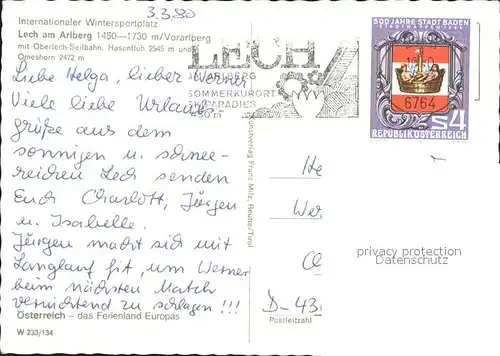 3.3.80
Internationaler Wintersportplatz
Lech am Arlberg 1450—1730 m/Vorarlberg
mit Oberlech-Seilbahn, Hasenfluh 2545 m und
Omeshorn 2472 m
LECH
ARLBERG
SOMMERKURORT
500 JAHRE STADT BADEN
STADTWAPPEN 1480
6764
S4
REPUBLIK ÖSTERREICH
Liebe Helga, lieber Werner
Viele liebe Urlaubs-
grüße aus dem
sonnigen u. schnee-
reichen Lech senden
Euch Charlott, Jürgen
u. Isabelle.
Jürgen macht sich mit
Langlauf fit, um Werner
beim nächsten Match
vernichtend zu schlagen !!!
Österreich – das Ferienland Europas
W 233/134
He
Wer
D-43
Postleitzahl
privacy protection
Datenschutz